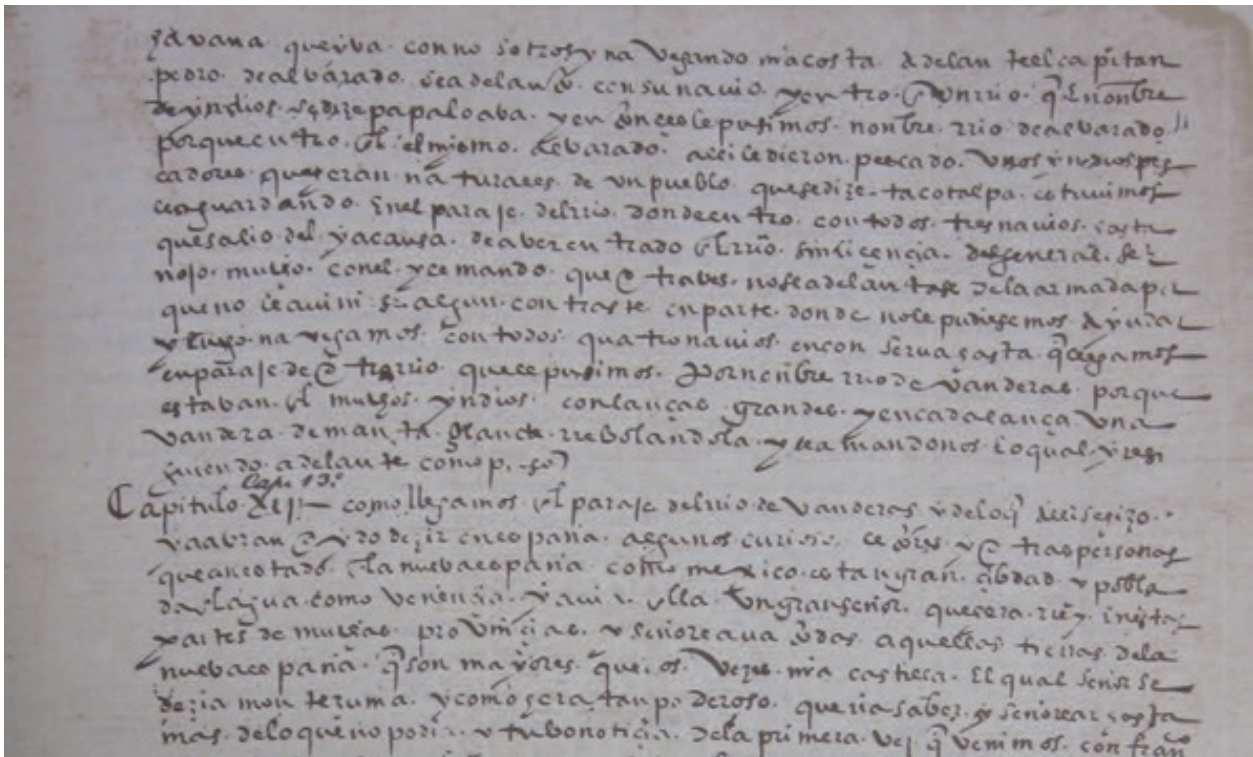 havana que yva con nosotros y navegando nra costa adelante el capitan
pedro de alvarado se adelanto con su navio y entro en un rrio q en nonbre
de yndios se dize papaloava y entonces le pusimos nonbre rrio de alvarado
porque entro en el el mismo alvarado alli le dieron pescado unos yndios pes
cadores queran naturales de un pueblo que se dize tacotalpa estuvimos
le aguardando en el paraje del rrio donde entro con todos tres navios hasta
que salio del y a causa de aver entrado en el rrio sin licencia del general se
nojo mucho con el y le mando que otra ves no se adelantase del armada por
que no le aviniese algun contraste en parte donde no le pudiesemos ayudar
y luego navegamos con todos quatro navios en conserva hasta q llegamos
en paraje de otro rrio que le pusimos por nonbre rrio de vanderas porque
estavan en el muchos yndios con lanças grandes y en cada lança una
vandera de manta blanca rrebolandola y llamandonos lo qual yre si
guiendo adelante como paso
Cap. 13.
Capitulo XIII como llegamos en el paraje del rrio de vanderas y de lo q alli se hizo
ya abran oydo dezir en españa algunos curiosos letores y otras personas
que an estado en la nueva españa como mexico es tan gran çibdad y pobla
da en el agua como venençia y avia en ella un gran señor que era rrey en estas
partes de muchas provinçias y señoreava todas aquellas tierras de la
nueva españa q son mayores que dos vezes nra castilla el qual señor se
dezia monteçuma y como era tan poderoso queria saber y señorear hasta
mas de lo que no podia y tubo notiçia de la primera vez q venimos con franco